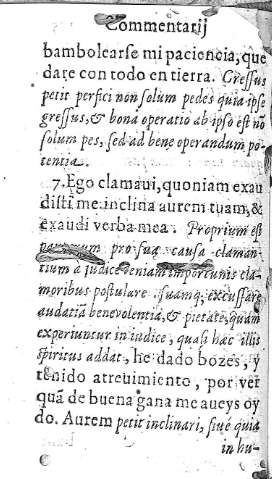 Commentarij
bambolearse mi paciencia, que
dare con todo en tierra. Cressus
petit perfici non solum pedes quia ipse
gressus, & bona operatio ab ipso est nō
solum pes, sed ad bene operandum po-
tentia.
7. Ego clamaui, quoniam exau
disti me: inclina aurem tuam, &
exaudi verba mea. Proprium est
pro sua causa claman-
tium a judice veniam importunis cla-
moribus postulare suamq; excussare
audatiā benevolentiā, & pietate, quam
experiuntur in iudice, quasi hæc illis
spiritus addat, he dado bozes, y
tenido atreuimiento, por ver
quā de buena gana me aueys oy
do. Aurem petit inclinari, siue quia
in hu-